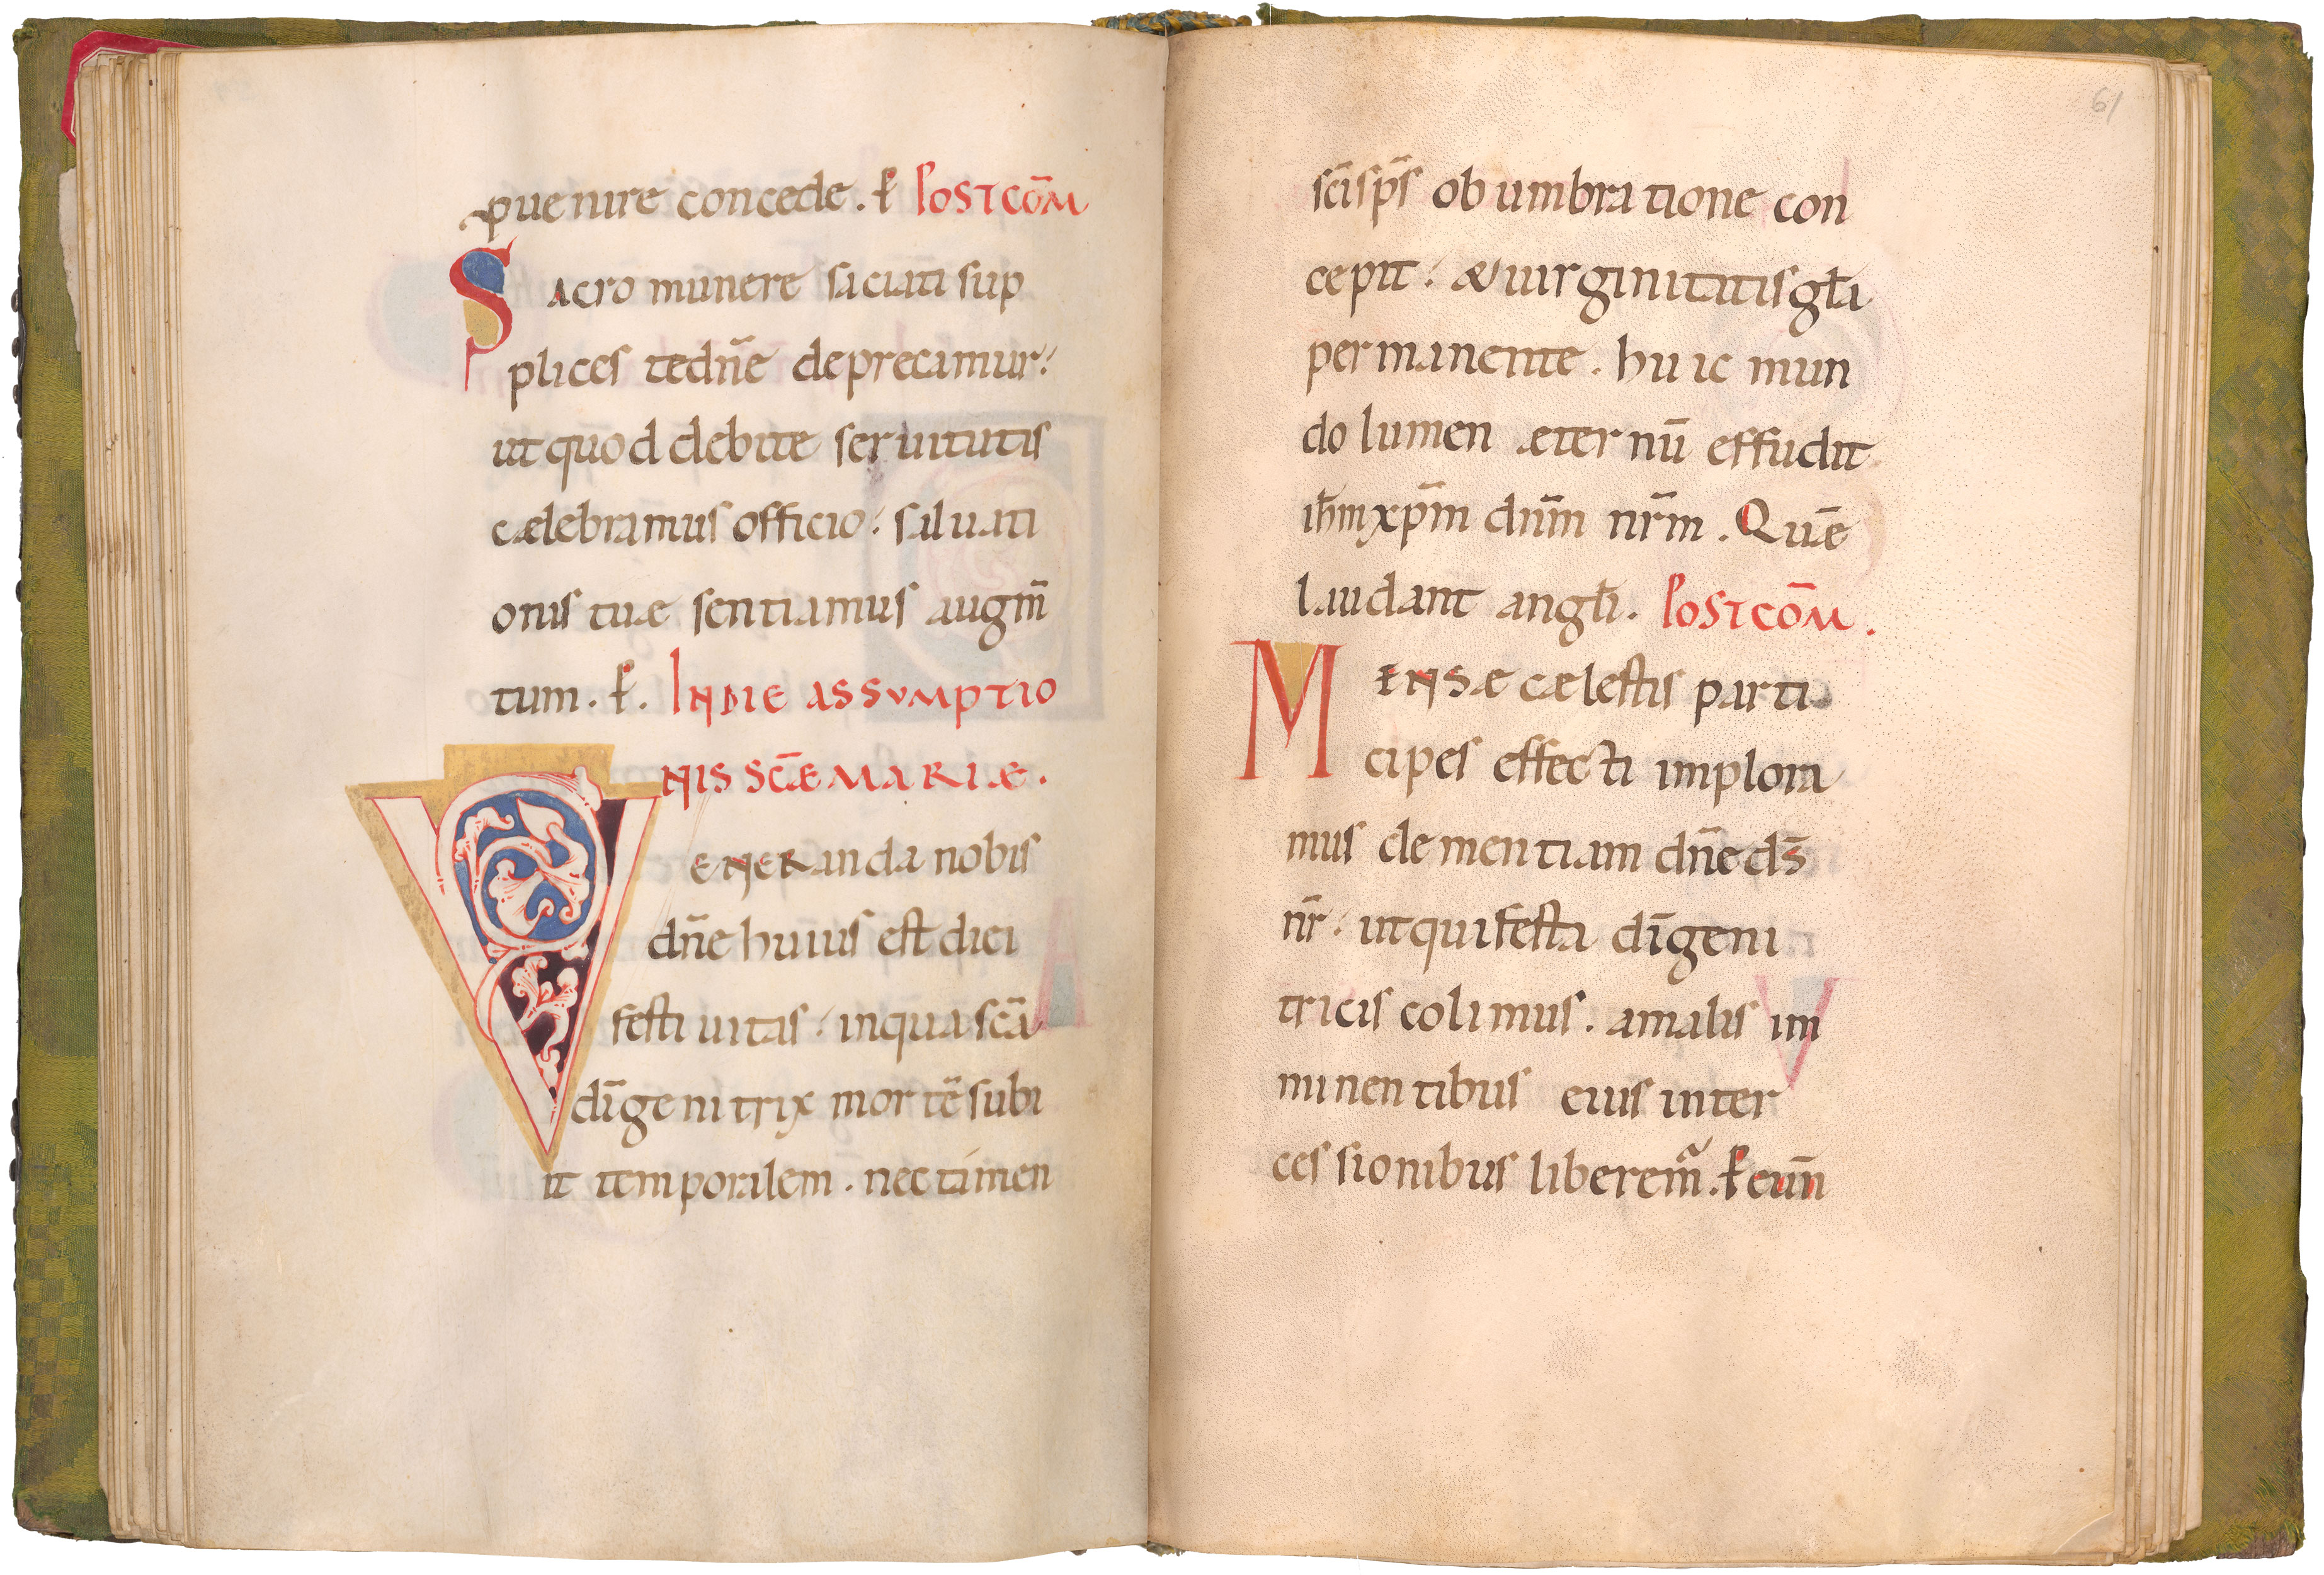 puenire concede. ꝑ Postcōm
Sacro munere saciati sup
plices te dñe deprecamur.
ut quod debite seruitutis
cælebramus officio. saluati
onis tuæ sentiamus augm̄
tum. ꝑ. In die assumptio
nis sc̄æ mariæ.
Veneranda nobis
dñe huius est diei
festiuitas. in qua sc̄a
dī genitrix mortē subi
it temporalem. nec tamen
61
sc̄i sp̄s obumbratione con
cepit. & uirginitatis gl̄a
permanente. huic mun
do lumen æternū effudit
ih̄m xp̄m dn̄m nr̄m. Quē
laudant angl̄i. Postcōm.
Mensæ cælestis parti
cipes effecti implora
mus clementiam dñe ds̄
nr̄. ut qui festa dī geni
tricis colimus. a malis im
minentibus eius inter
cessionibus liberem̄. ꝑ eun̄